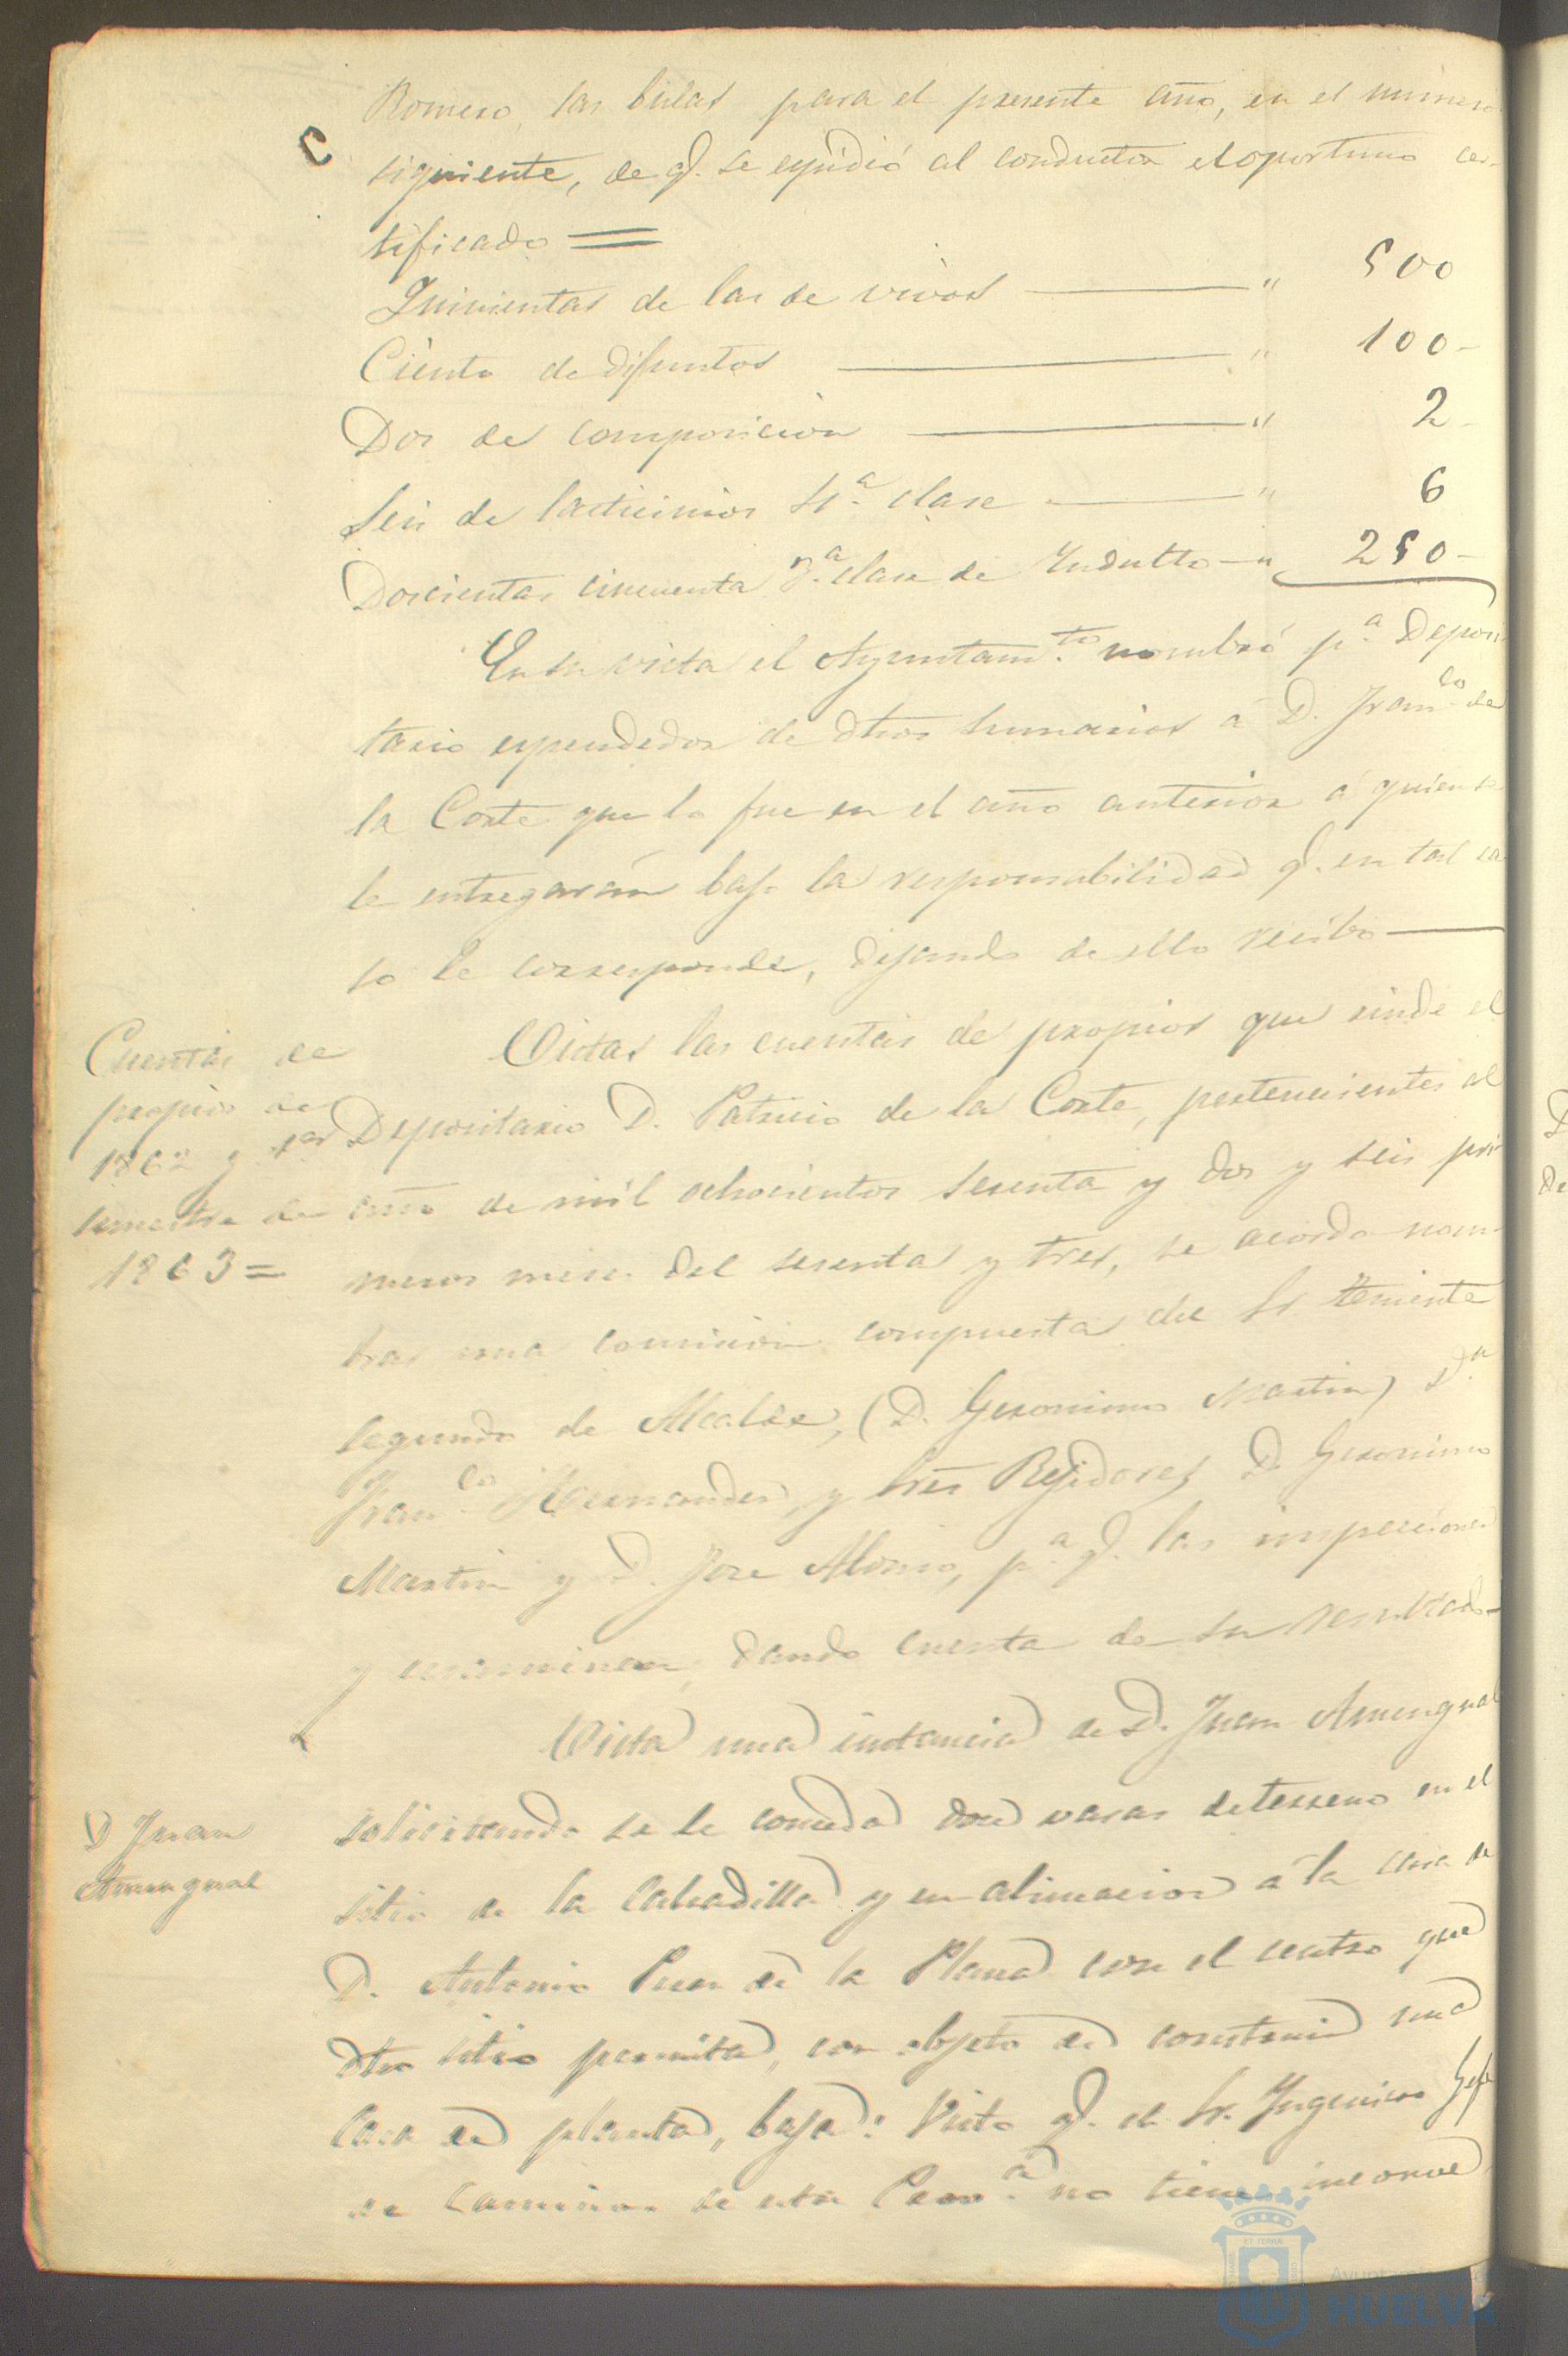 Romero, las bulas para el presente año, en el numero
siguiente, de q. se espidió al conductor el oportuno cer-
tificado =
Quinientas de las de vivos — " 500
Ciento de difuntos — " 100-
Dos de composicion — " 2-
Seis de lacticinios 4.ª clase — " 6
Doscientas cincuenta 3.ª clase de Indulto — " 250-
En su vista el Ayuntam.to nombró p.ª Deposi
tario espendedor de dhos sumarios á D. Fran.co de
la Corte que lo fue en el año anterior á quien se
le entregarán bajo la responsabilidad q. en tal ca
so le corresponde, dejando de ello recibo —
Cuentas de
propios de
1862 y 1.er
semestre de
1863 =
Vistas las cuentas de propios que rinde el
Depositario D. Patricio de la Corte, pertenecientes al
año de mil ochocientos sesenta y dos y seis pri
meros mese. del sesenta y tres, se acordo nom
brar una comision compuesta del Sr. teniente
segundo de Alcalde, (D. Geronimo Martin) D.n
Fran.co Hernandez, y Sres Rejidores D. Geronimo
Martin y D. Jose Alonso, p.ª q. las inspeccionen
y ecsaminen, dando cuenta de su resultado
D Juan
Amengual
Vista una instancia de D. Juan Amengual
solicitando se le conceda doce varas de terreno en el
sitio de la Calzadilla y en alineacion á la casa de
D. Antonio de la Plana con el centro que
dho sitio permita, con objeto de construir una
casa de planta, baja: Visto q. el Sr. Ingeniero Gefe
de Caminos de esta Prov.ª no tiene inconve
Ayuntamiento
HUELVA